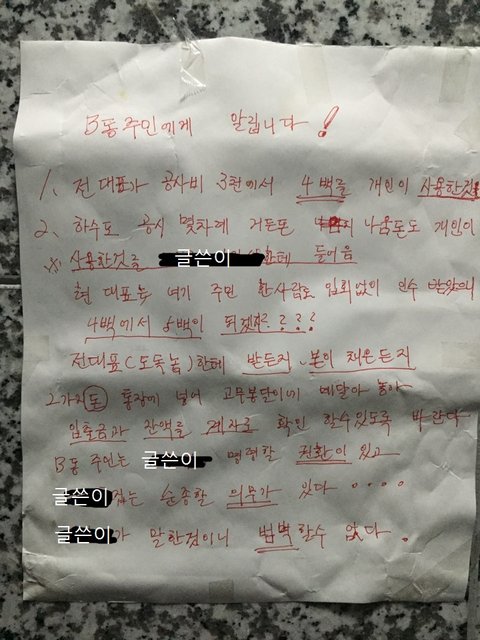 B동 주민에게 알립니다!
1. 전 대표가 공사비 3천에서 4백을 개인이 사용한것
2. 하수도 공사 몇차례 거든돈 나옴돈도 개인이
※ 사용한것을 글쓴이 한테 들어음
현 대표는 여기 주민 한사람도 입회없이 인수 받았으니
4백에서 5백이 되겠지????
전대표(도독놈)한테 받든지、본이 채운든지
2가지 돈 통장에 넣어 고무봉단이에 메달아 놓아
입출금과 잔액을 계자로 확인 할수있도록 바란다
B동 주민는 글쓴이 명령할 권환이 있고
글쓴이 는 순종할 의무가 있다....
글쓴이가 말한것이니 번벅할수 없다.